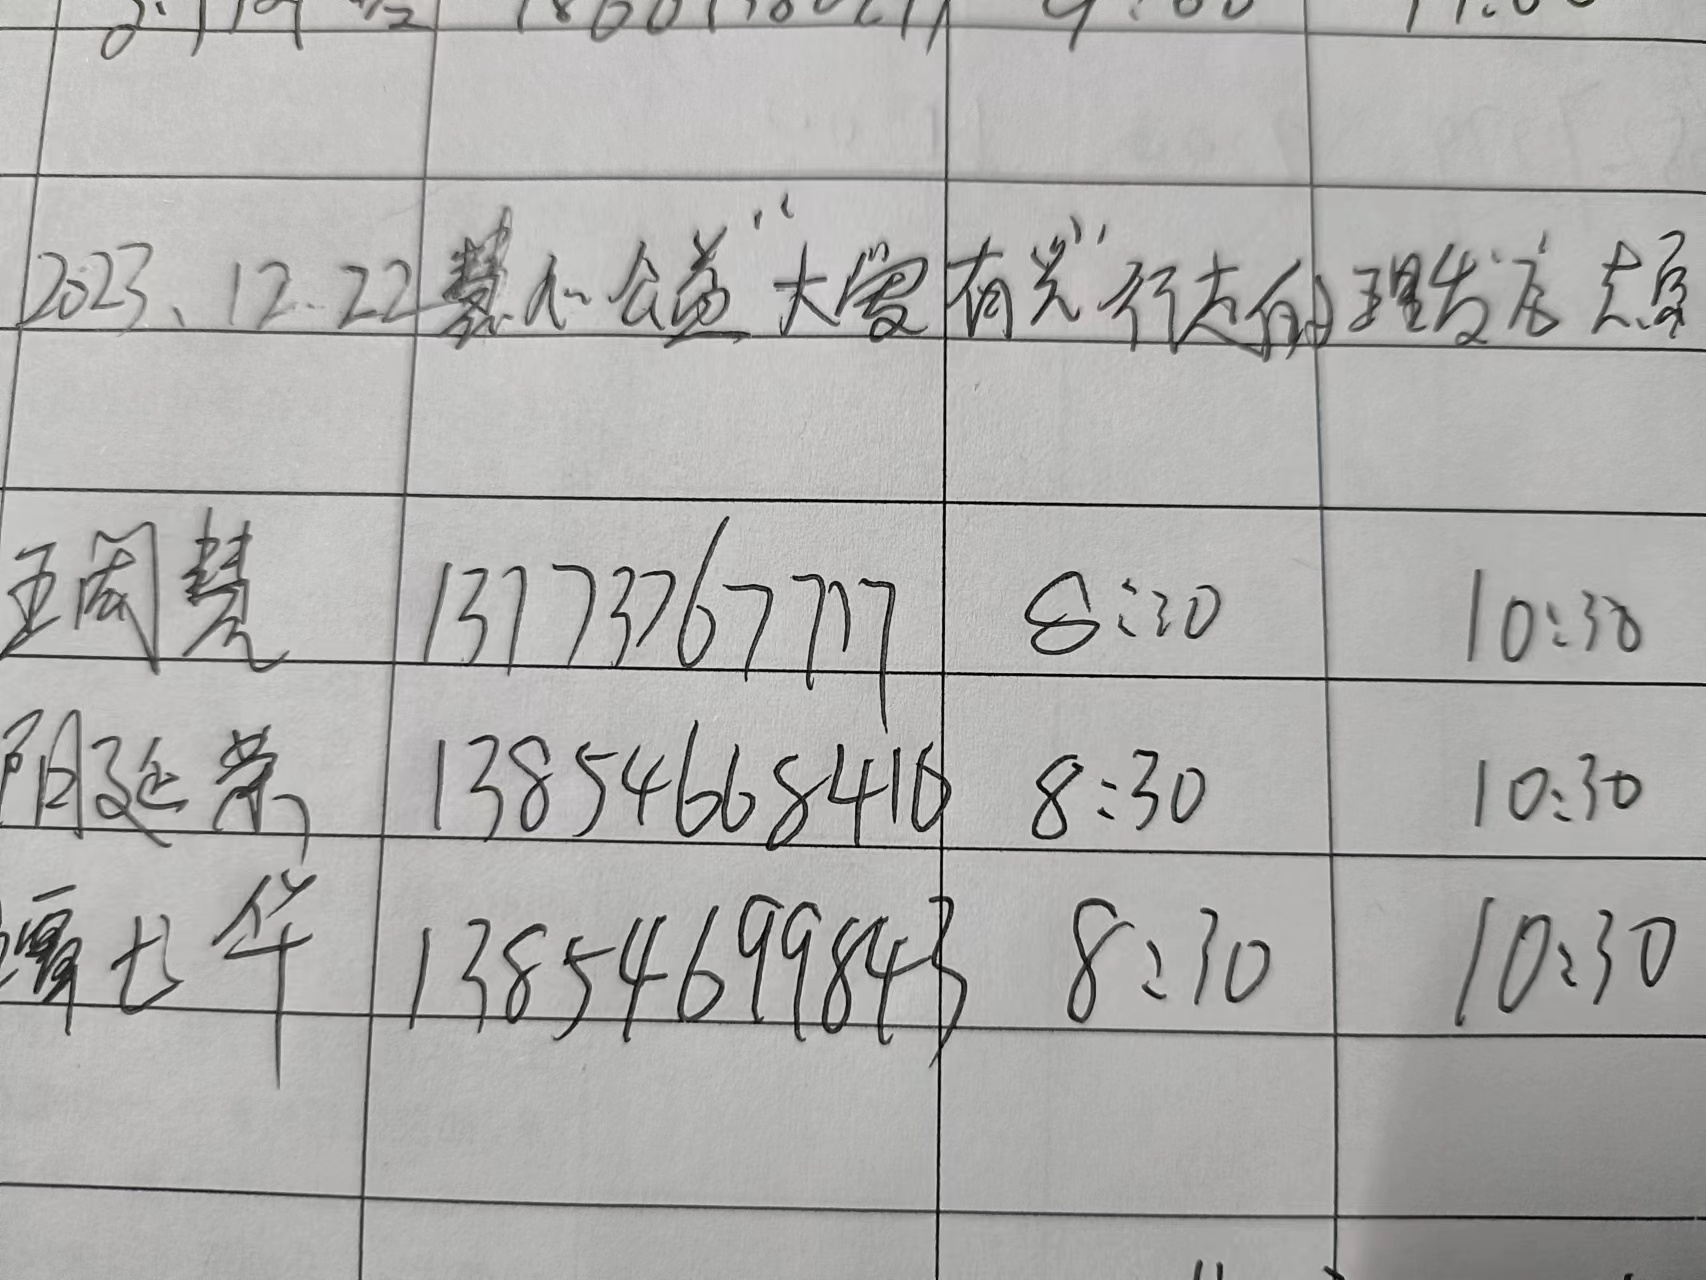 9:00
2023.12.22 慧心公益"大爱有光"行走的理发店志愿
王阁慧 13773767777 8:30 10:30
阳延荣 13854668410 8:30 10:30
谭七华 13854699843 8:30 10:30